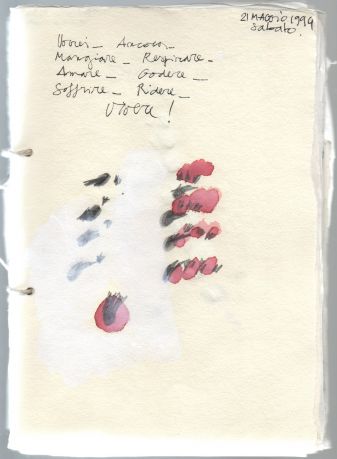 21 MAGGIO 1994
Sabato.
Vorrei _ Ancora _
Mangiare _ Respirare _
Amare _ Godere _
Soffrire _ Ridere _
Vivere !